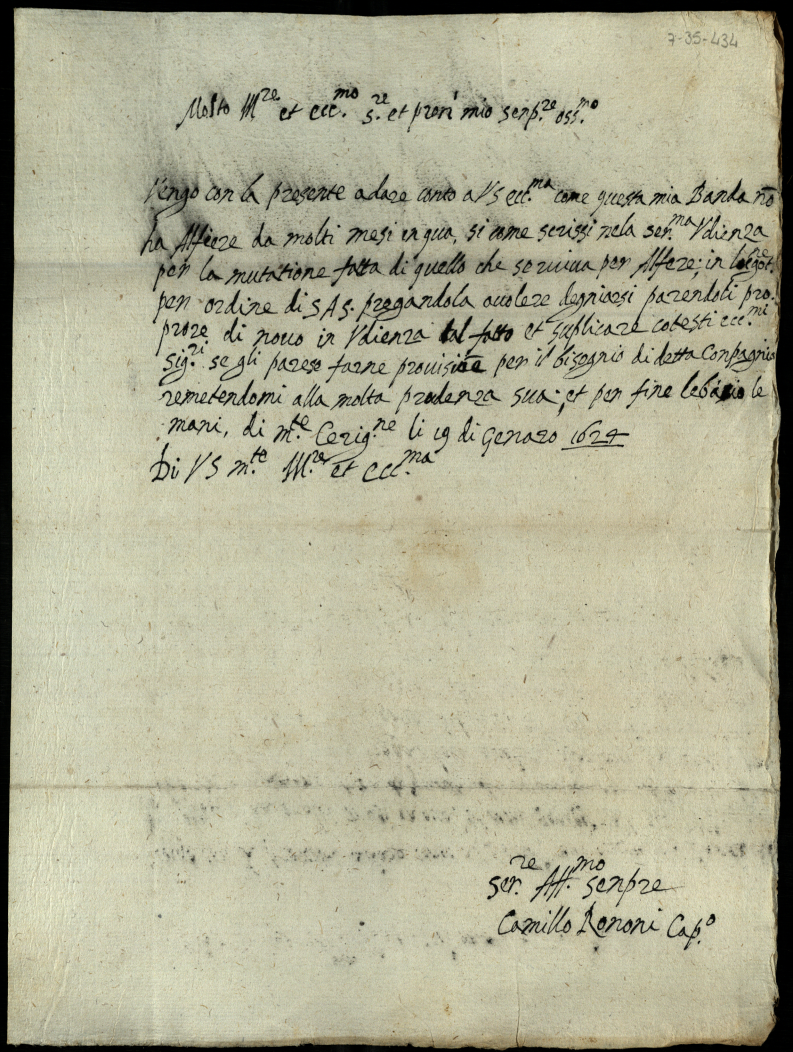 7-35-434
Molto Ill.re et ecc.mo s.re et pron mio senp.re oss.mo
Vengo con la presente a dare conto a VS ecc.ma come questa mia Banda nō
ha Alfiere da molti mesi in qua, si come scrissi nela ser.ma Vdienza
per la mutatione fatta di quello che serviva per Alfere, in
per ordine di S A S. pregandola avolere degniarsi parendoli pro.
prore di novo in Vdienza tal fatto et suplicare cotesti ecc.mi
Sig.ri se gli pareso farne provisiōe per il bisognio di detta Conpagnia
remetendomi alla molta prudenza sua, et per fine le bascio le
mani, di m.te Cerig.ne li 19 di Genaro 1624
Di VS m.to Ill.re et ecc.ma
Ser.re Aff.mo senpre
Camillo Bononi Cap.o